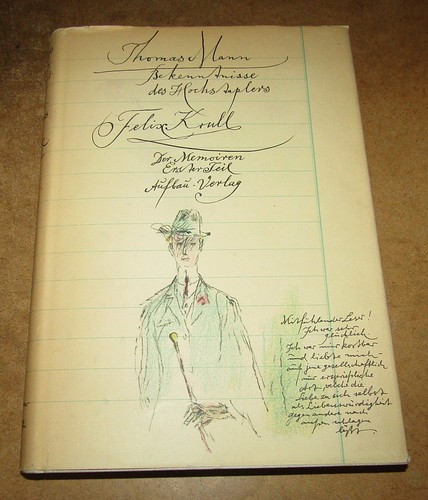 Thomas Mann
Bekenntnisse
des Hochstaplers
Felix Krull
Der Memoiren
Erster Teil
Aufbau-Verlag
Mitfühlender Leser!
Ich war sehr
glücklich.
Ich war mir kostbar
und liebte mich -
auf jene gesellschaftlich
nur ersprießliche
Art, welche die
Liebe zu sich selbst
als Liebenswürdigkeit
gegen andere nach
außen schlagen
läßt